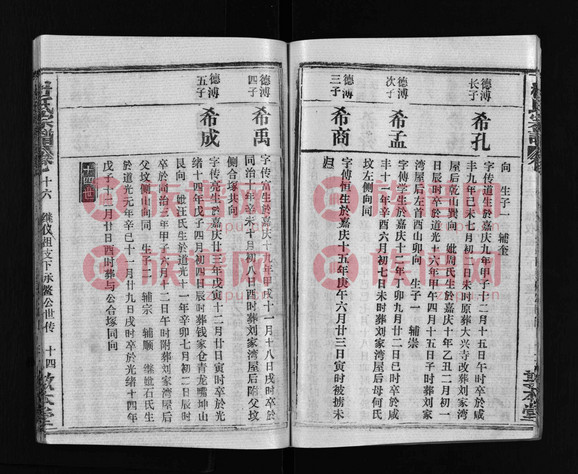 向 生子一 辅奎
德溥长子 希孔
字传道生於嘉庆九年甲子十二月十五日午时卒於咸
丰九年己未十一月初七日未时原葬大兴寺改葬刘家湾
屋后乾山巽向 妣周氏生於嘉庆十年乙丑二月初一
日辰时卒於道光十六年甲午四月十五日子时葬刘家
湾屋后左首酉山卯向 生子一 辅崇
德溥次子 希孟
字传学生於嘉庆十二年丁卯九月二日巳时卒於咸
丰十一年辛酉六月初七日未时葬刘家湾屋后母何氏
坟左侧向同
德溥三子 希商
字傅恒生於嘉庆十五年庚午六月廿三日寅时被掳未
归
德溥四子 希禹
字传富生於嘉庆十九年甲戌十一月十八日戌时卒於
同治十年辛未十月初八日酉时葬刘家湾屋后陪父坟
侧合塚共向
德溥五子 希成
字传亮生於嘉庆廿三年戊寅十二月廿日寅时卒於光
绪十四年戊子四月初四日辰时葬钱家仓青龙嘴坤山
艮向 妣汪氏生於道光十一年辛卯七月初二日辰时
卒於同治六年丁卯二月十二日午时附葬刘家湾屋后
父坟侧山向同 生子二 辅宗 辅顺 继妣石氏生
於道光元年辛巳十一月廿九日戌时卒於光绪十四年
戊子十二月廿日酉时葬与公合塚同向
十六 继仪祖支下承鳌公世传 十四 敦本堂
族谱网